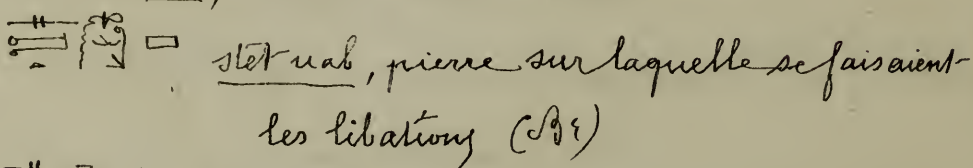 stet uab, pierre sur laquelle se faisaient
les libations